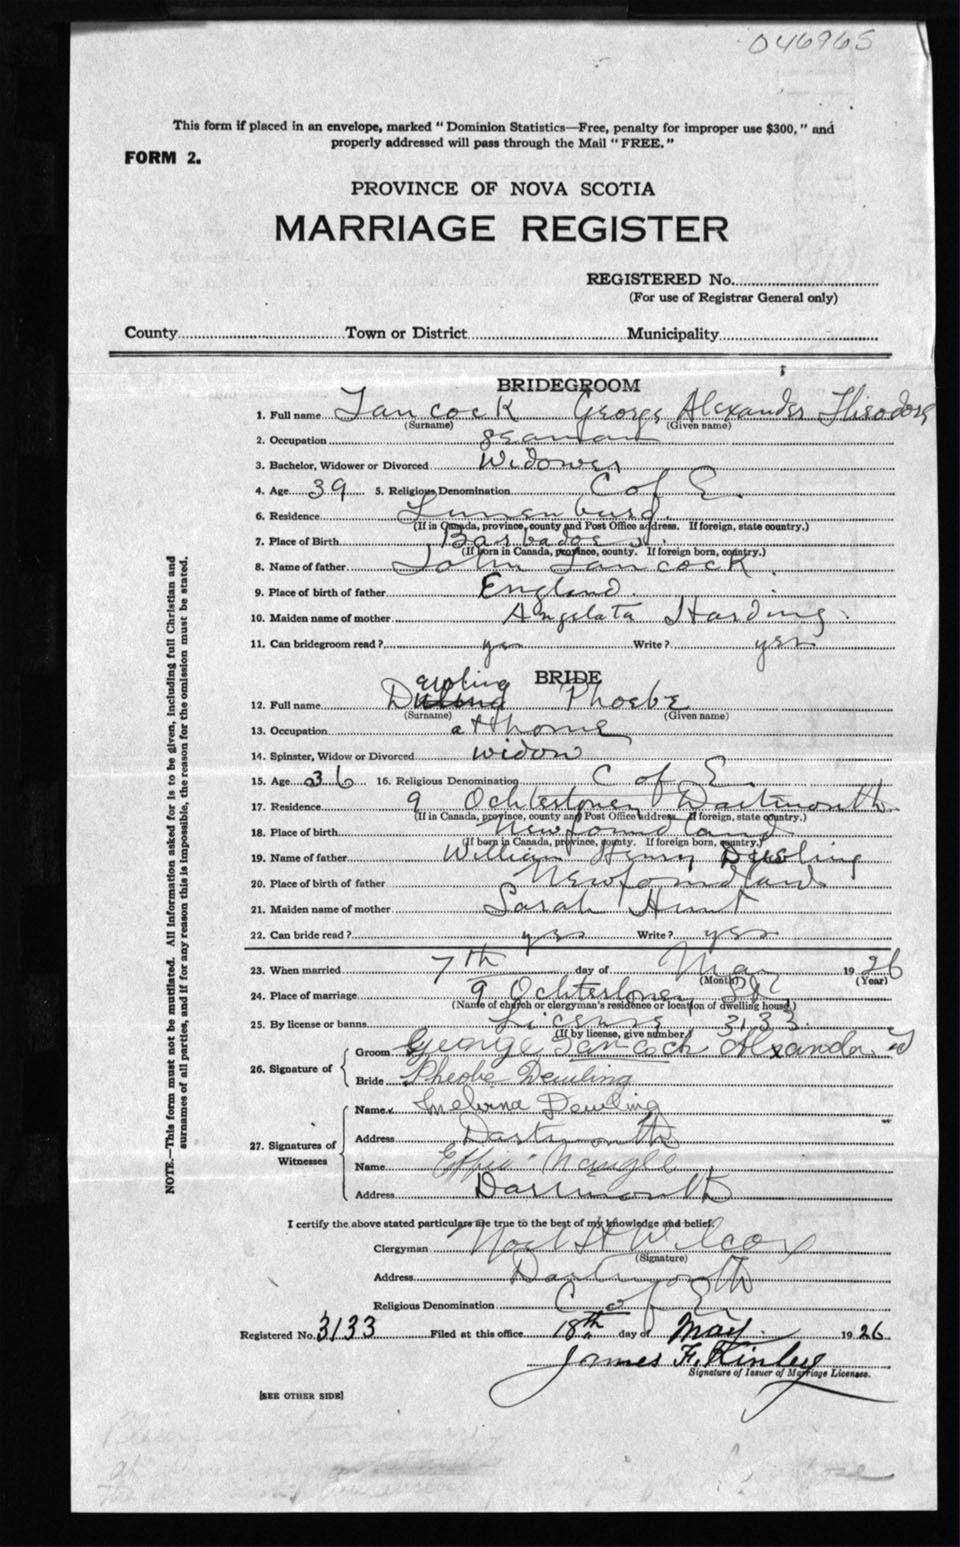 046965
This form if placed in an envelope, marked "Dominion Statistics—Free, penalty for improper use $300," and
properly addressed will pass through the Mail "FREE."
FORM 2.
PROVINCE OF NOVA SCOTIA
MARRIAGE REGISTER
REGISTERED No.
(For use of Registrar General only)
County Town or District Municipality
BRIDEGROOM
1. Full name Tancock George Alexander Theodore
(Surname) (Given name)
2. Occupation seaman
3. Bachelor, Widower or Divorced Widower
4. Age 39 5. Religious Denomination C of E.
6. Residence Lunenburg.
(If in Canada, province, county and Post Office address. If foreign, state country.)
7. Place of Birth Barbadoes.
(If born in Canada, province, county. If foreign born, country.)
8. Name of father John Tancock.
9. Place of birth of father England.
10. Maiden name of mother Angelata Harding.
11. Can bridegroom read? yes Write? yes
BRIDE
12. Full name Phoebe
(Surname) (Given name)
13. Occupation at home
14. Spinster, Widow or Divorced widow
15. Age 36 16. Religious Denomination C of E.
17. Residence 9 Ochterloney Dartmouth
(If in Canada, province, county and Post Office address. If foreign, state country.)
18. Place of birth Newfoundland
(If born in Canada, province, county. If foreign born, country.)
19. Name of father William Henry
20. Place of birth of father Newfoundland
21. Maiden name of mother Sarah Hunt
22. Can bride read? yes Write? yes
23. When married 7th day of May 1926
(Month) (Year)
24. Place of marriage 9 Ochterloney St
(Name of church or clergyman's residence or location of dwelling house)
25. By license or banns License 3133.
(If by license, give number)
26. Signature of Groom George Tancock Alexander
Bride Pheobe Dewling
27. Signatures of Witnesses
Name Melvina Dewling
Address Dartmouth
Name Effie Naugle
Address Dartmouth
I certify the above stated particulars are true to the best of my knowledge and belief.
Clergyman Noel H Wilcox
(Signature)
Address Dartmouth
Religious Denomination C of E
Registered No. 3133 Filed at this office 18th day of May 1926
James F. Kinley
Signature of Issuer of Marriage Licenses.
[SEE OTHER SIDE]
NOTE.—This form must not be mutilated. All information asked for is to be given, including full Christian and
surnames of all parties, and if for any reason this is impossible, the reason for the omission must be stated.